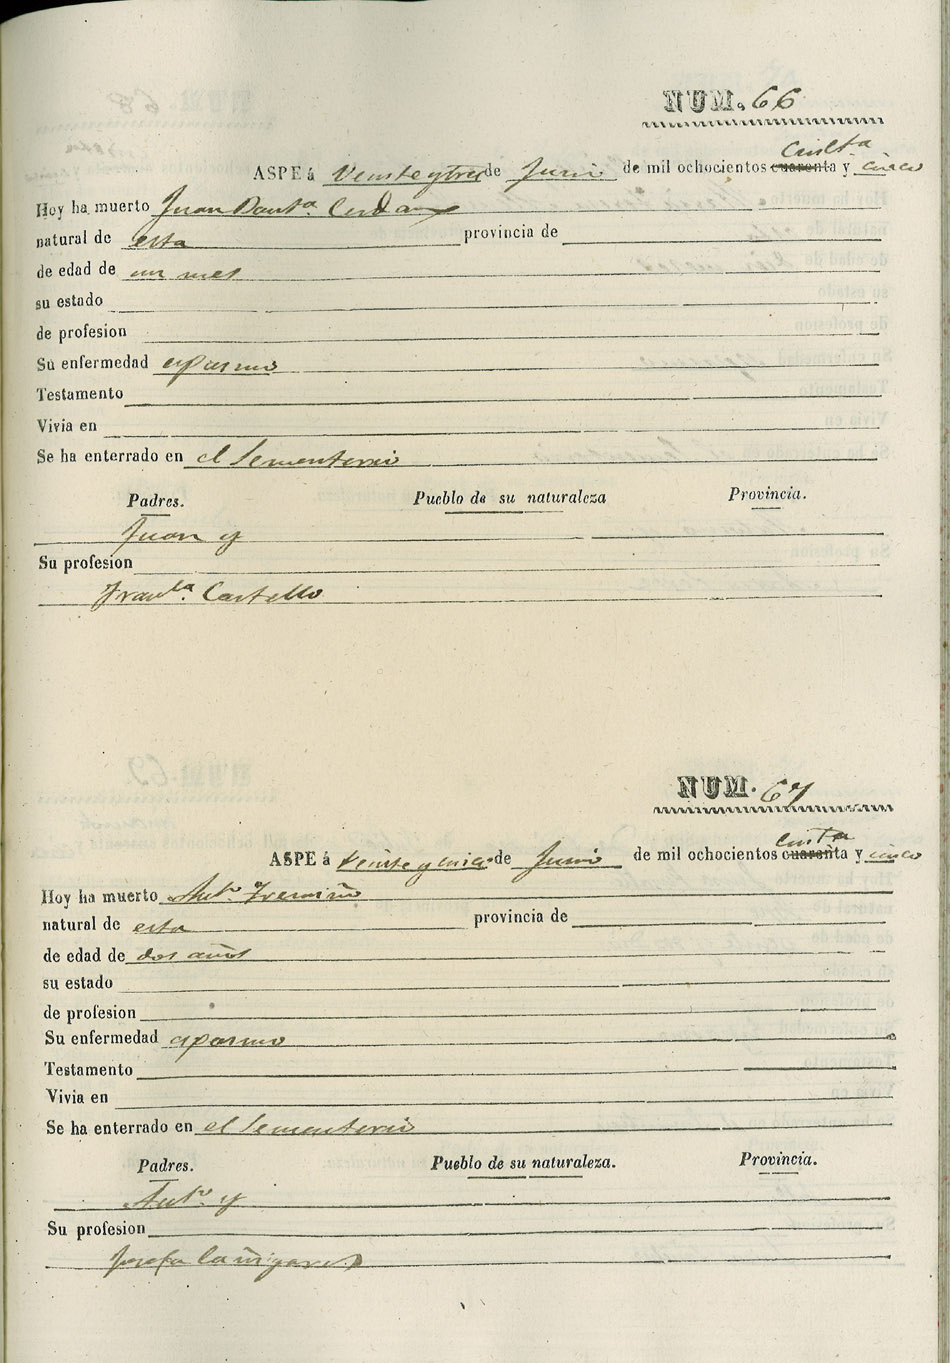 NUM. 66
ASPE á Veinte y tres de Junio de mil ochocientos cuarenta y cinco
Hoy ha muerto Juan Bauta. Cerdan
natural de esta provincia de
de edad de un mes
su estado
de profesion
Su enfermedad espasmo
Testamento
Vivia en
Se ha enterrado en el Sementerio
Padres. Pueblo de su naturaleza Provincia.
Juan y
Su profesion
Castello
NUM. 67
ASPE á de Junio de mil ochocientos cuarenta y cinco
Hoy ha muerto Anto.
natural de esta provincia de
de edad de dos años
su estado
de profesion
Su enfermedad espasmo
Testamento
Vivia en
Se ha enterrado en el Sementerio
Padres. Pueblo de su naturaleza. Provincia.
Anto. y
Su profesion
Josefa Cañizares